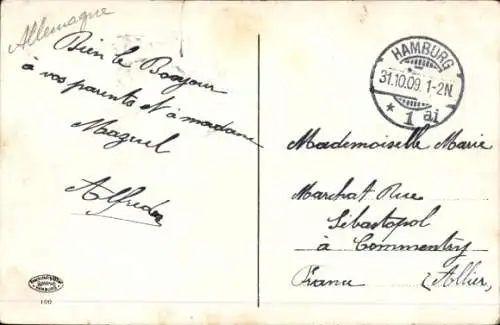 Allemagne
Bien le Bonjour
à vos parents et à madame
Mazuel
Alfred
HAMBURG
31.10.09. 1-2N.
* 1 ai
Mademoiselle Marie
Marchat Rue
Sébastopol
à Commentry
France (Allier)
100